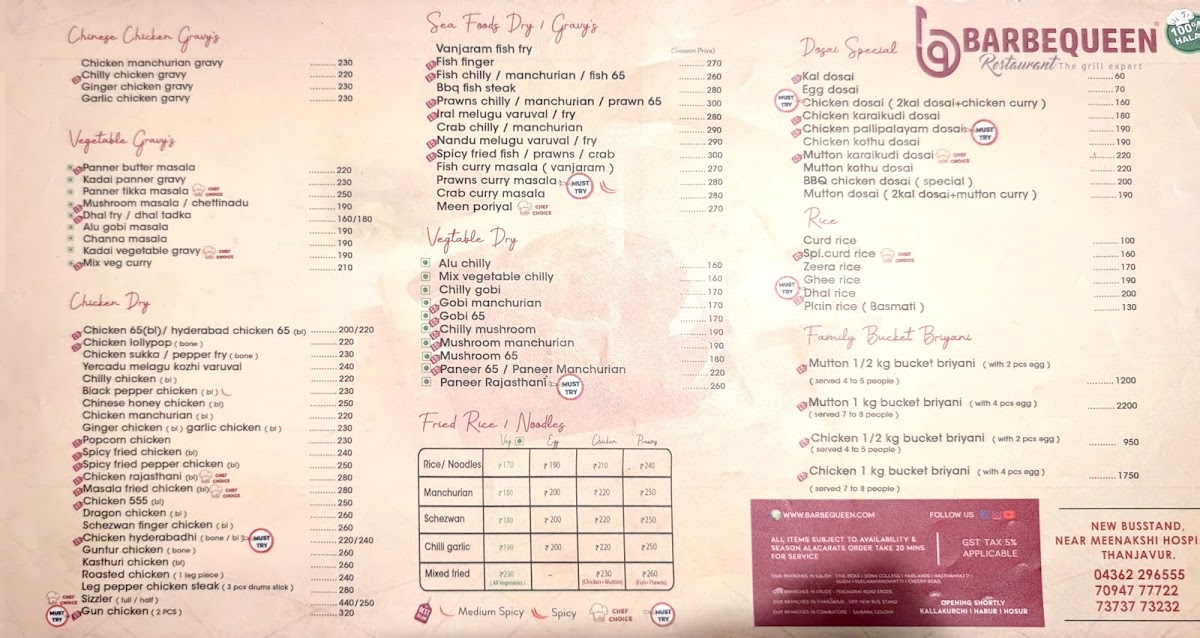 Chinese Chicken Gravy's
Chicken manchurian gravy ........ 230
Chilly chicken gravy ........ 220
Ginger chicken gravy ........ 230
Garlic chicken garvy ........ 230
Vegetable Gravy's
Panner butter masala ........ 220
Kadai panner gravy ........ 230
Panner tikka masala CHEF CHOICE ........ 250
Mushroom masala / chettinadu ........ 190
Dhal fry / dhal tadka ........ 160/180
Alu gobi masala ........ 190
Channa masala ........ 190
Kadai vegetable gravy CHEF CHOICE ........ 190
Mix veg curry ........ 210
Chicken Dry
Chicken 65(bl)/ hyderabad chicken 65 (bl) ........ 200/220
Chicken lollypop ( bone ) ........ 220
Chicken sukka / pepper fry ( bone ) ........ 230
Yercadu melagu kozhi varuval ........ 240
Chilly chicken ( bl ) ........ 220
Black pepper chicken ( bl ) ........ 230
Chinese honey chicken (bl) ........ 250
Chicken manchurian ( bl ) ........ 220
Ginger chicken ( bl ) garlic chicken ( bl ) ........ 230
Popcorn chicken ........ 230
Spicy fried chicken (bl) ........ 240
Spicy fried pepper chicken (bl) ........ 250
Chicken rajasthani (bl) CHEF CHOICE ........ 280
Masala fried chicken (bl) CHEF CHOICE ........ 280
Chicken 555 (bl) ........ 250
Dragon chicken ( bl ) ........ 260
Schezwan finger chicken ( bl ) ........ 260
Chicken hyderabadhi ( bone / bl ) MUST TRY ........ 220/240
Guntur chicken ( bone ) ........ 260
Kasthuri chicken ( bl ) ........ 260
Roasted chicken ( 1 leg piece ) ........ 240
Leg pepper chicken steak ( 3 pcs drums stick ) ........ 280
CHEF CHOICE Sizzler ( full / half ) ........ 440/250
MUST TRY Gun chicken ( 2 PCS ) ........ 320
Sea Foods Dry / Gravy's
Vanjaram fish fry (Season Price)
Fish finger ........ 270
Fish chilly / manchurian / fish 65 ........ 260
Bbq fish steak ........ 280
Prawns chilly / manchurian / prawn 65 ........ 300
Iral melugu varuval / fry ........ 280
Crab chilly / manchurian ........ 290
Nandu melugu varuval / fry ........ 290
Spicy fried fish / prawns / crab ........ 300
Fish curry masala ( vanjaram ) ........ 270
Prawns curry masala MUST TRY ........ 280
Crab curry masala ........ 280
Meen poriyal CHEF CHOICE ........ 270
Vegtable Dry
Alu chilly ........ 160
Mix vegetable chilly ........ 160
Chilly gobi ........ 170
Gobi manchurian ........ 170
Gobi 65 ........ 170
Chilly mushroom ........ 190
Mushroom manchurian ........ 190
Mushroom 65 ........ 180
Paneer 65 / Paneer Manchurian ........ 220
Paneer Rajasthani MUST TRY ........ 260
Fried Rice / Noodles
Veg Egg Chicken Prawns
Rice/ Noodles ₹170 ₹190 ₹210 ₹240
Manchurian ₹180 ₹200 ₹220 ₹250
Schezwan ₹180 ₹200 ₹220 ₹250
Chilli garlic ₹190 ₹200 ₹220 ₹250
Mixed fried ₹200 - ₹230 ₹260
( All Vegetables ) (Chicken+Mutton) (Fish+Prawns)
Medium Spicy Spicy CHEF CHOICE MUST TRY
BARBEQUEEN
Restaurant The grill expert
100% HALA
Dosai Special
Kal dosai ........ 60
Egg dosai ........ 70
MUST TRY Chicken dosai ( 2kal dosai+chicken curry ) ........ 160
Chicken karaikudi dosai ........ 180
Chicken pallipalayam dosai MUST TRY ........ 190
Chicken kothu dosai ........ 190
Mutton karaikudi dosai CHEF CHOICE ........ 220
Mutton kothu dosai ........ 220
BBQ chicken dosai ( special ) ........ 200
Mutton dosai ( 2kal dosai+mutton curry ) ........ 190
Rice
Curd rice ........ 100
Spl.curd rice CHEF CHOICE ........ 160
Zeera rice ........ 170
MUST TRY Ghee rice ........ 190
Dhal rice ........ 200
Plain rice ( Basmati ) ........ 130
Family Bucket Briyani
Mutton 1/2 kg bucket briyani ( with 2 pcs egg )
( served 4 to 5 people ) ........ 1200
Mutton 1 kg bucket briyani ( with 4 pcs egg ) ........ 2200
( served 7 to 8 people )
Chicken 1/2 kg bucket briyani ( with 2 pcs egg ) ........ 950
( served 4 to 5 people )
Chicken 1 kg bucket briyani ( with 4 pcs egg ) ........ 1750
( served 7 to 8 people )
WWW.BARBEQUEEN.COM
FOLLOW US
ALL ITEMS SUBJECT TO AVAILABILITY &
SEASON ALACARATE ORDER TAKE 20 MINS
FOR SERVICE
GST TAX 5%
APPLICABLE
OPENING SHORTLY
KALLAKURCHI I HARUR I HOSUR
NEW BUSSTAND,
NEAR MEENAKSHI HOSPI
THANJAVUR.
04362 296555
70947 77722
73737 73232